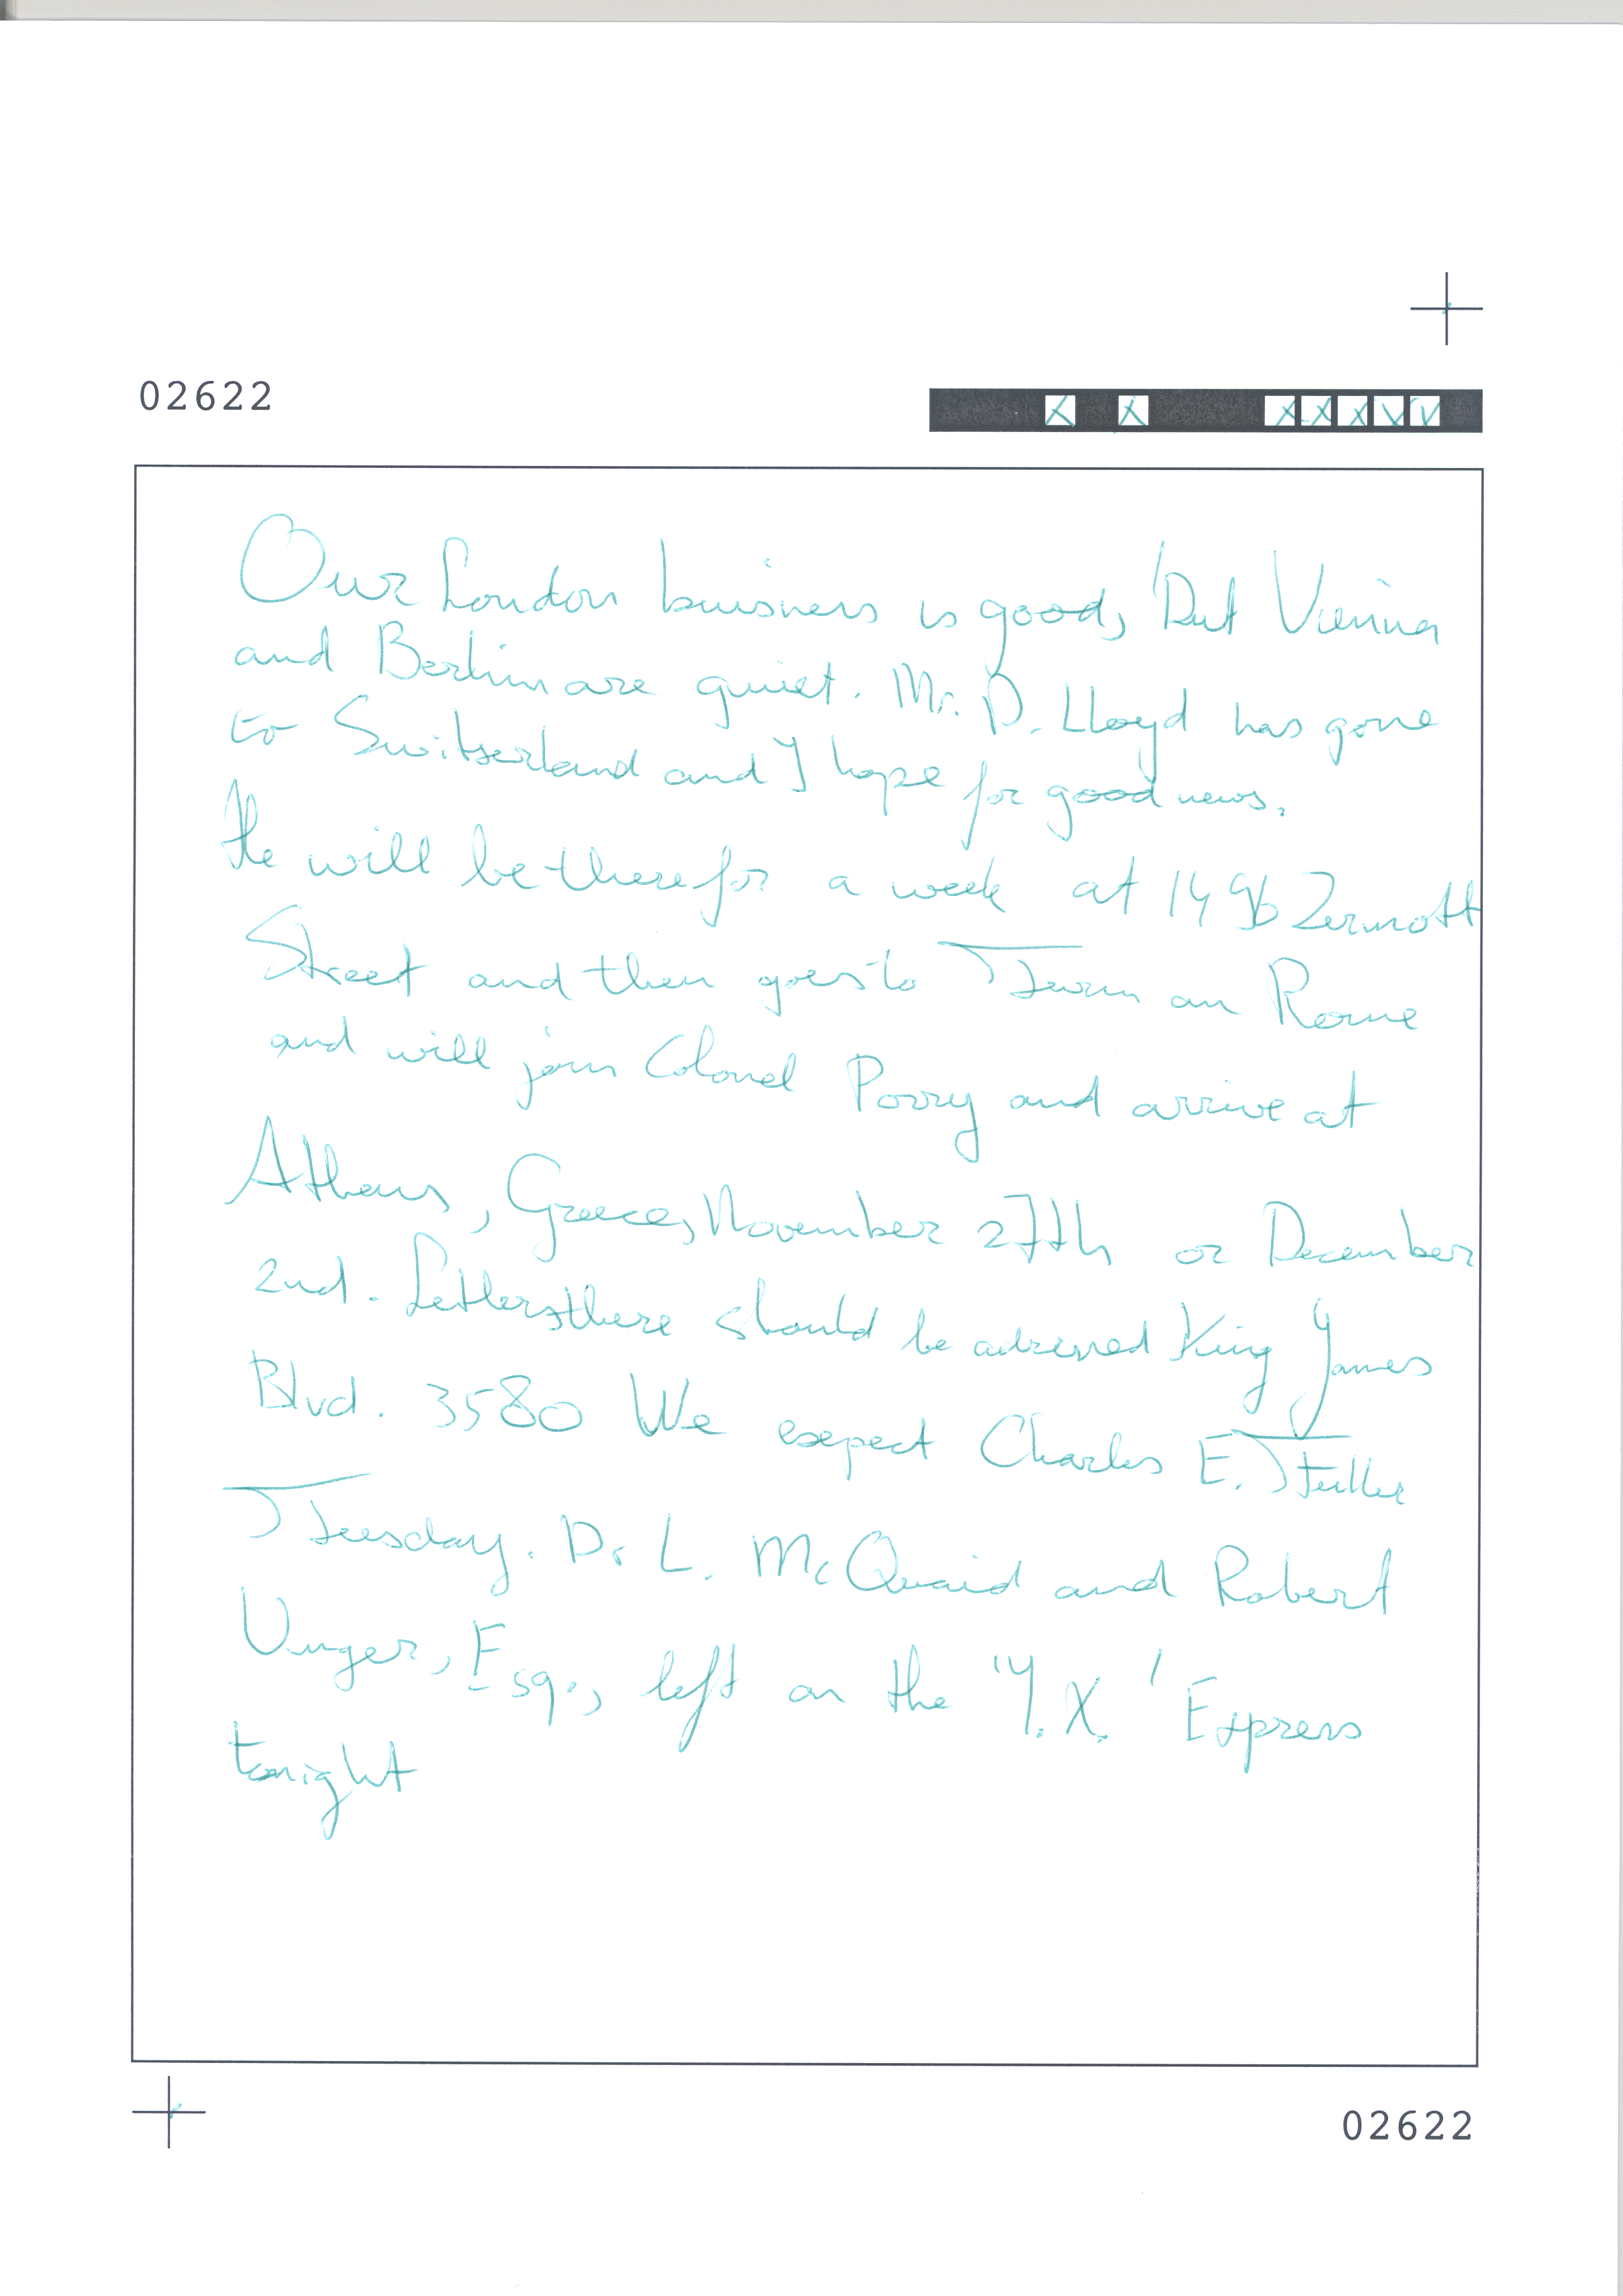 02622
Our London buisness is good, But Vienna
and Berlin are quiet. Mr. D. Lloyd has gone
to Switserland and I hope for good news.
He will be there for a week at 1496 Zermott
Street and then goes to Turin an Rome
and will join Colonel Parry and arrive at
Athens, Greece, November 27th or December
2nd. Letters there should be adressed King James
Blvd. 3580 We expect Charles E. Fuller
Tuesday. Dr L. McQuaid and Robert
Unger, Esq., left on the 'Y.X.' Express
tonight
02622